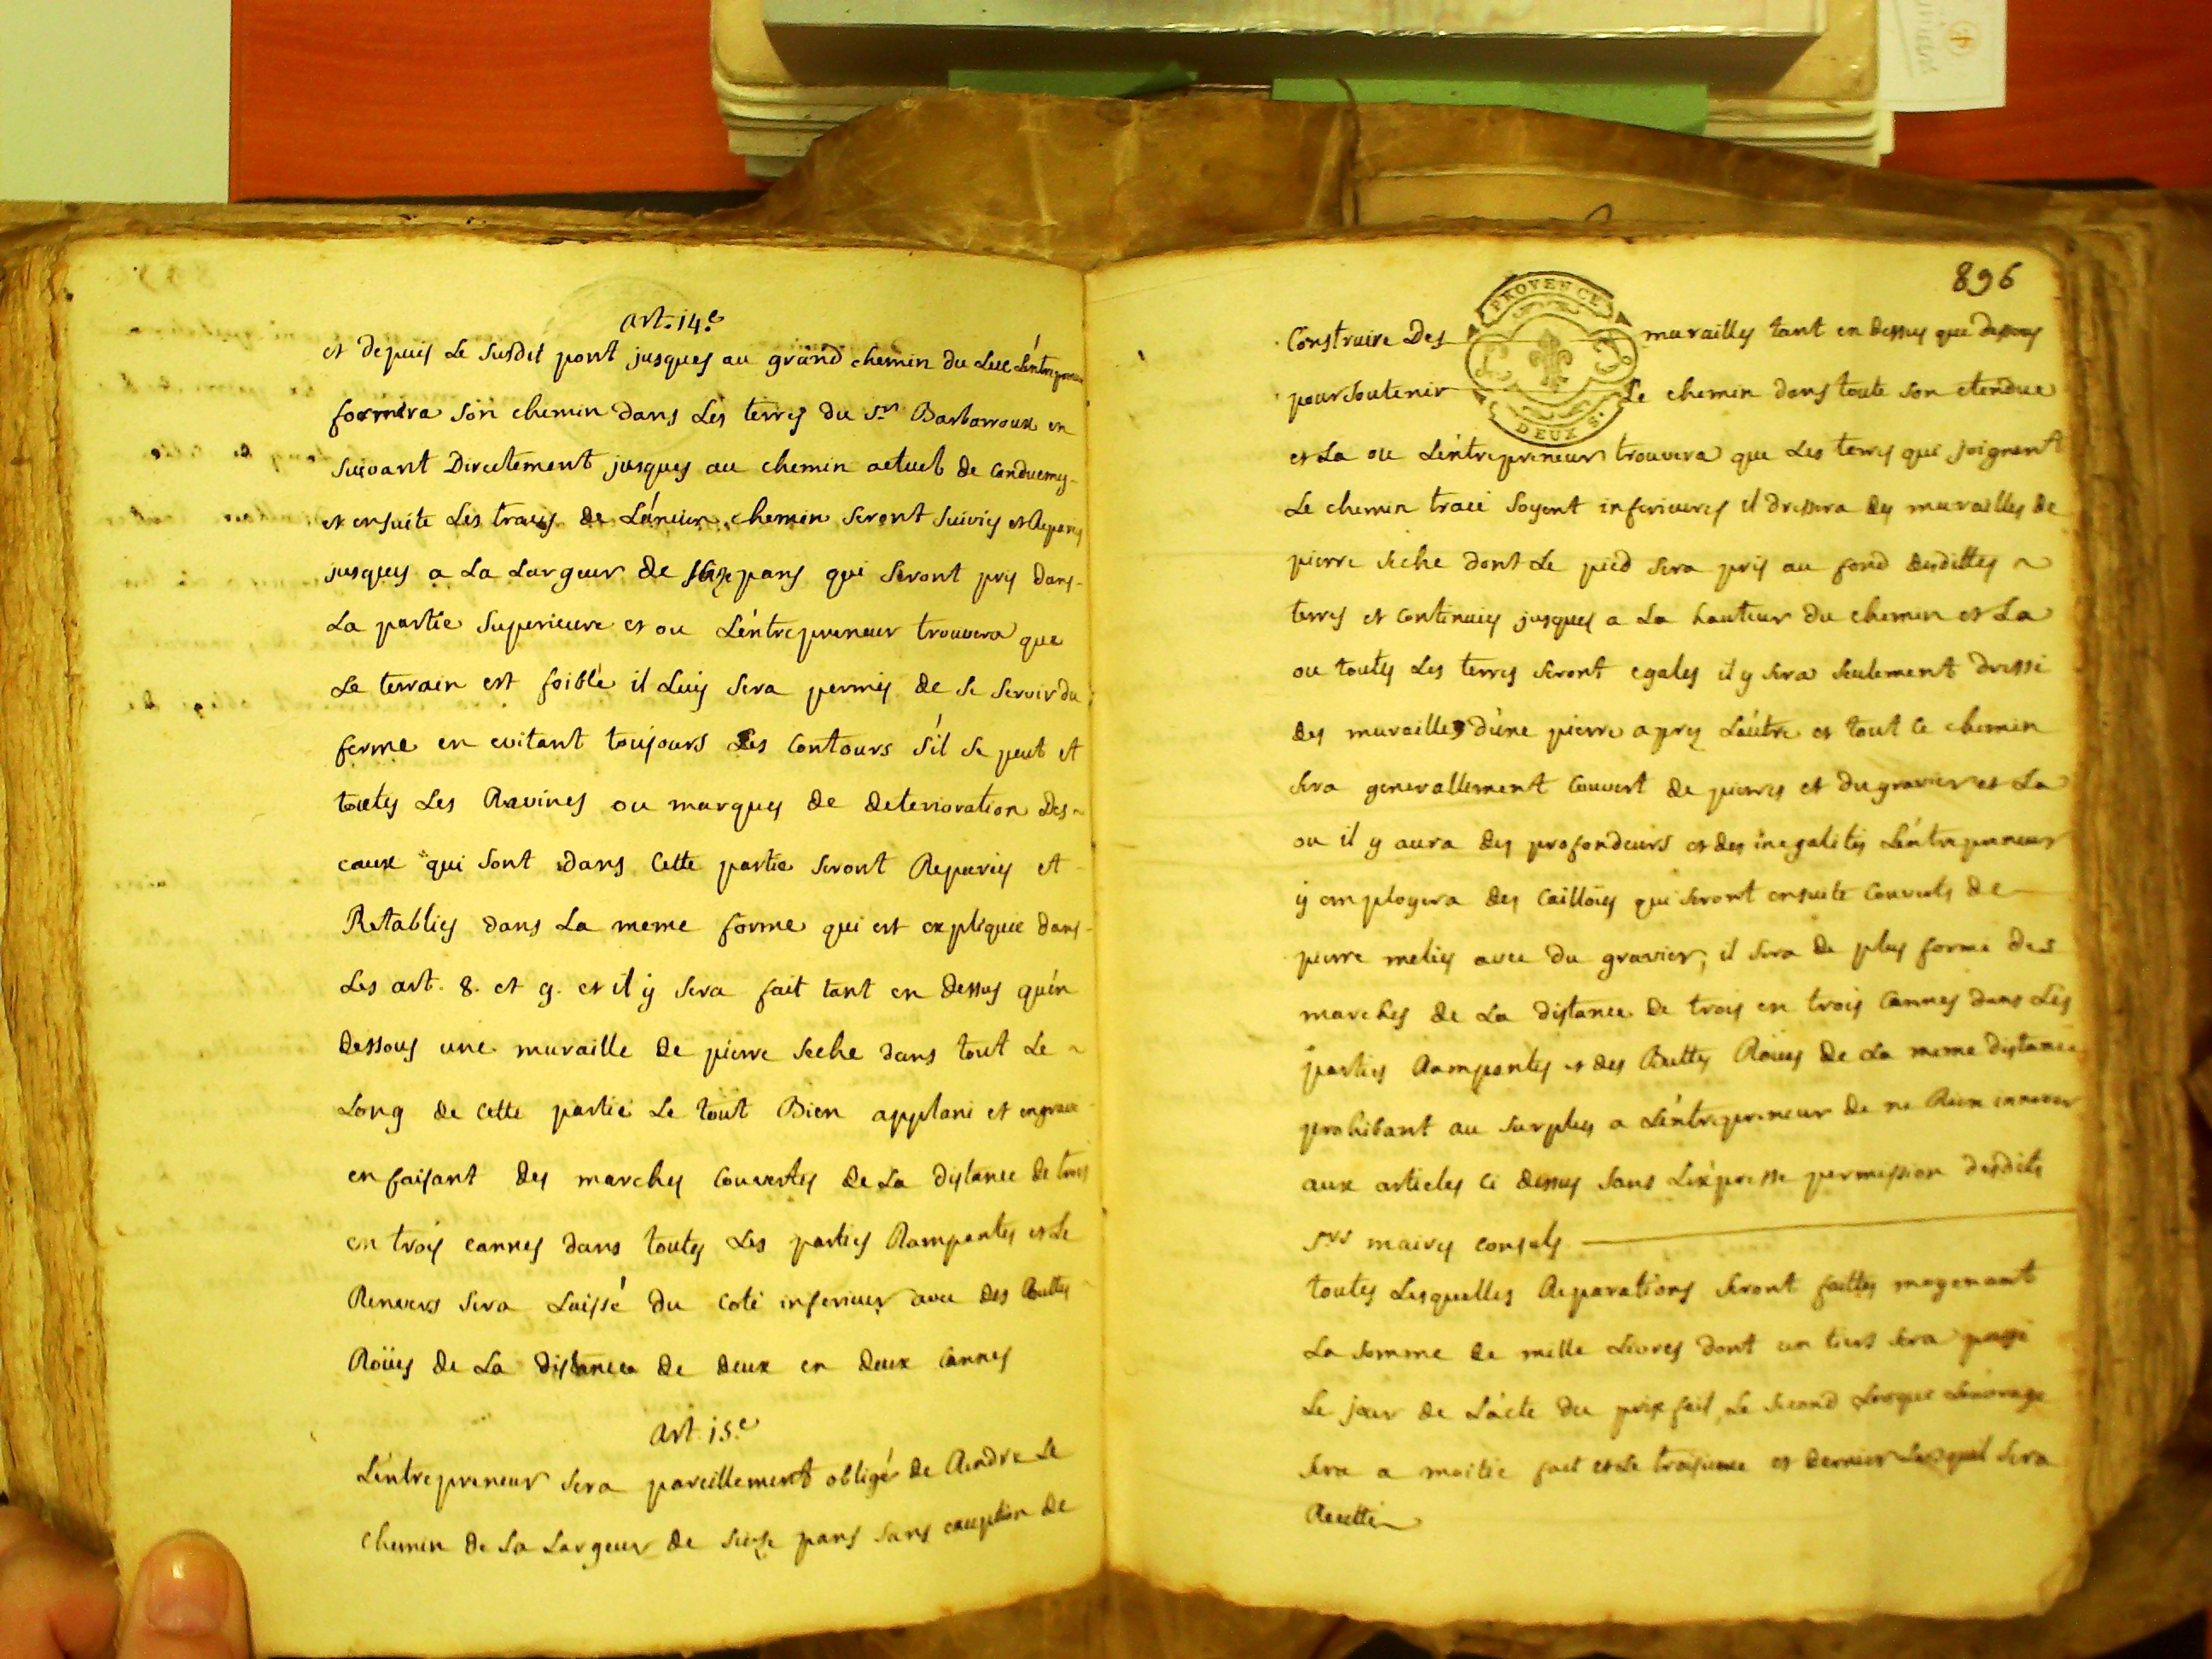 art. 14.e
et depuis Le susdit pont jusques au grand chemin du Luc L'entrepreneur
formera son chemin dans Les terres du Sr. Barbarroux en
suivant Directement jusques au chemin actuel de
et ensuite Les traces de L'ancien chemin seront suivies et Reparés
jusques a La Largeur de seize pans qui seront pris dans
La partie superieure et ou L'entrepreneur trouvera que
Le terrain est foible il Luy sera permis de se servir du
ferme en evitant toujours Les contours s'il se peut et
toutes Les Ravines ou marques de deterioration Des
eaux qui sont dans Cette partie seront Reparées et
Retablies dans La meme forme qui est expliquée dans
Les art. 8. et 9. et il y sera fait tant en Dessus qu'en
dessous une muraille de pierre seche dans tout Le
Long de Cette partie Le tout Bien applani et engravé
en faisant des marches Couvertes de La distance de trois
en trois cannes dans toutes Les parties Rampantes et Le
Renvers sera Laissé du Coté inferieur avec des Buttes
Roües de La distance de deux en deux Cannes
Art. 15.e
L'entrepreneur sera pareillement obligé de Rendre Le
Chemin de La Largeur de seize pans sans exception de
896
PROVENCE
DEUX S.
Construire Des murailles tant en dessus que dessous
pour soutenir Le chemin dans toute son etendue
et La ou L'entrepreneur trouvera que Les terres qui joignent
Le chemin tracé soyent inferieures il dressera des murailles de
pierre seche dont Le pied sera pris au fond desdittes
terres et Continuées jusques a La hauteur du chemin et La
ou toutes Les terres seront egales il y sera seulement dressé
des murailles d'une pierre apres L'autre et tout Ce chemin
sera generallement Couvert de pierres et du gravier et La
ou il y aura des profondeurs et des inegalités L'entrepreneur
y employera des Cailloüs qui seront ensuite Couverts de
pierre melées avec du gravier, il sera de plus formé des
marches de La distance de trois en trois Cannes dans Les
parties Rampantes et des Buttes Roües de La meme distance
prohibant au surplus a L'entrepreneur de ne Rien innover
aux articles Ci dessus sans L'expresse permission desdits
srs maires consuls
toutes Lesquelles Reparations seront faittes moyenant
La somme de mille Livres dont un tiers sera payé
Le jour de L'acte du prix fait, Le second Lorsque L'ouvrage
sera a moitié fait et Le troisieme et dernier Lorsqu'il sera
Recetté